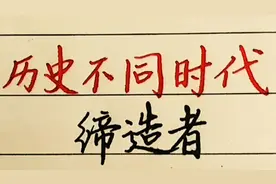 历史不同时代
缔造者